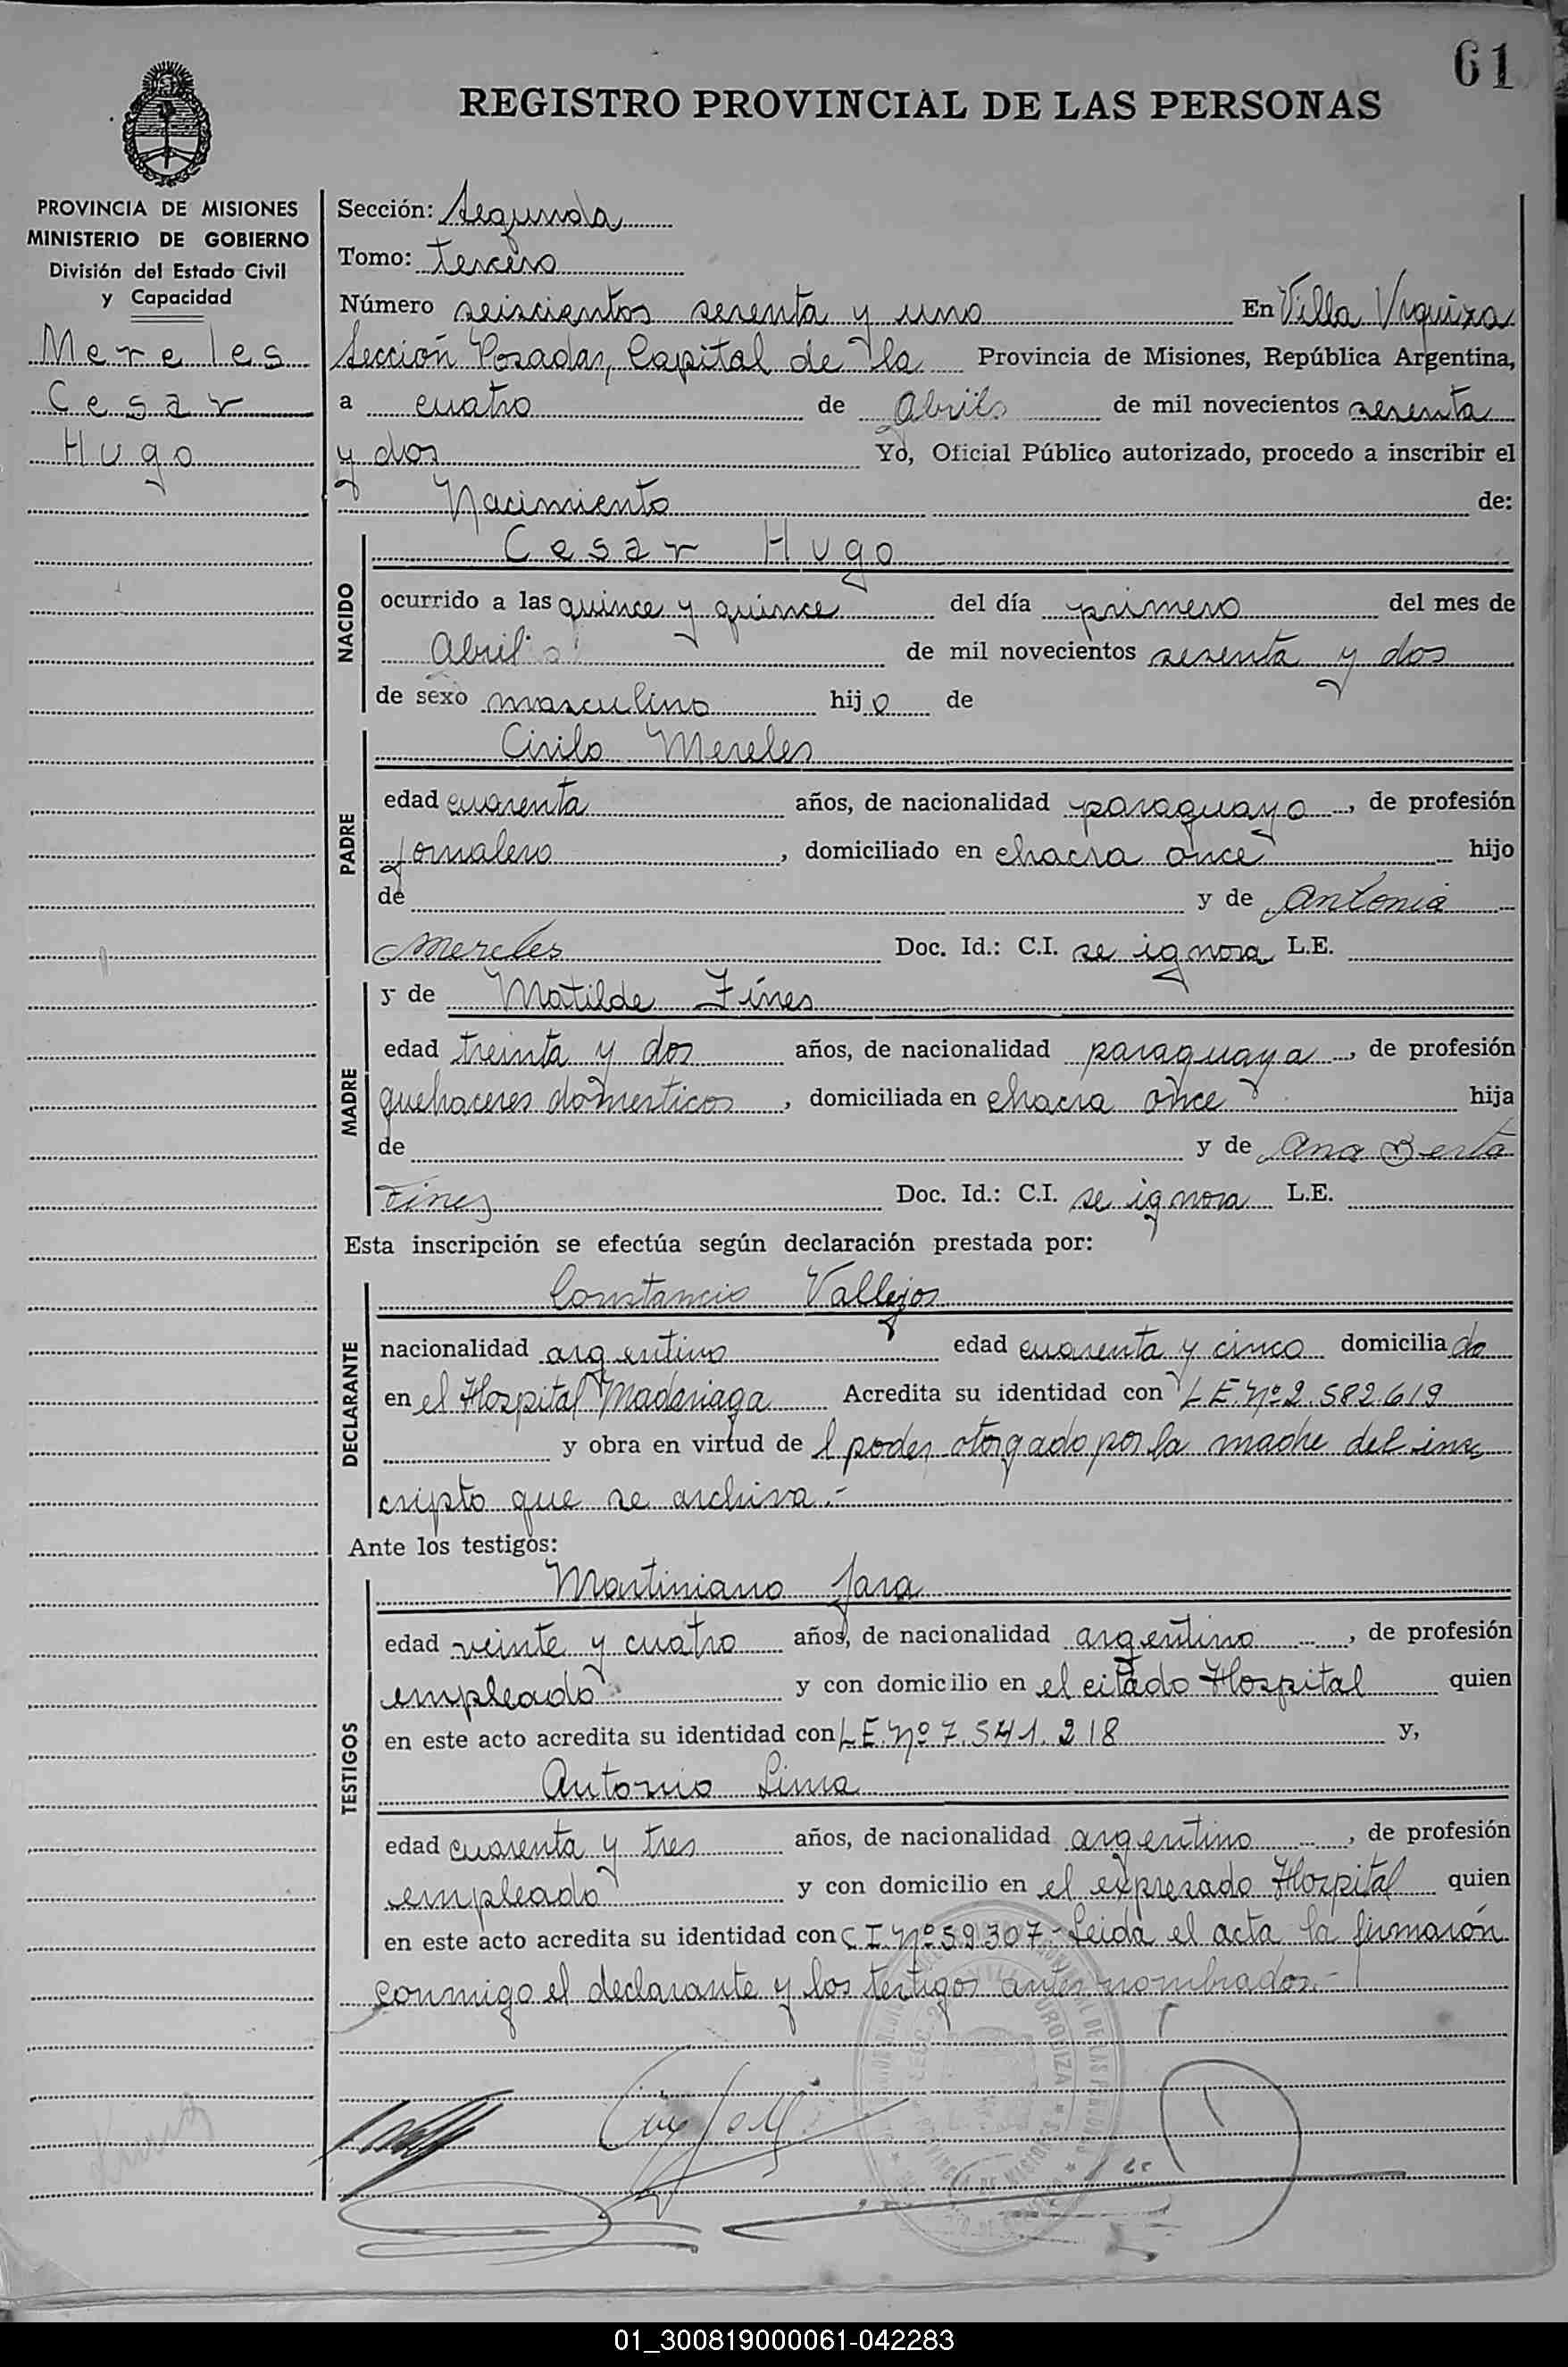 61
REGISTRO PROVINCIAL DE LAS PERSONAS
PROVINCIA DE MISIONES
MINISTERIO DE GOBIERNO
División del Estado Civil
y Capacidad
Mereles
Cesar
Hugo
Sección: Segunda
Tomo: tercero
Número seiscientos sesenta y uno En Villa Urquiza
Sección Posadas, Capital de la Provincia de Misiones, República Argentina,
a cuatro de Abril de mil novecientos sesenta
y dos Yo, Oficial Público autorizado, procedo a inscribir el
Nacimiento de:
NACIDO
Cesar Hugo
ocurrido a las quince y quince del día primero del mes de
Abril de mil novecientos sesenta y dos
de sexo masculino hijo de
PADRE
Cirilo Mereles
edad cuarenta años, de nacionalidad paraguayo, de profesión
jornalero, domiciliado en chacra once hijo
de y de Antonia
Mereles Doc. Id.: C.I. se ignora L.E.
MADRE
y de Matilde Fines
edad treinta y dos años, de nacionalidad paraguaya, de profesión
quehaceres domesticos, domiciliada en chacra once hija
de y de Ana Berta
Fines Doc. Id.: C.I. se ignora L.E.
Esta inscripción se efectúa según declaración prestada por:
DECLARANTE
Constancio Vallejos
nacionalidad argentino edad cuarenta y cinco domiciliado
en el Hospital Madariaga Acredita su identidad con L E. Nº 2.582.619
y obra en virtud del poder otorgado por la madre del ins
cripto que se archiva.-
Ante los testigos:
TESTIGOS
Martiniano Jara
edad veinte y cuatro años, de nacionalidad argentino, de profesión
empleado y con domicilio en el citado Hospital quien
en este acto acredita su identidad con L E Nº 7.541.218 y,
Antonio Lima
edad cuarenta y tres años, de nacionalidad argentino, de profesión
empleado y con domicilio en el expresado Hospital quien
en este acto acredita su identidad con C I Nº 59307- Leida el acta la firmaron
conmigo el declarante y los testigos antes nombrados.-
01_300819000061-042283